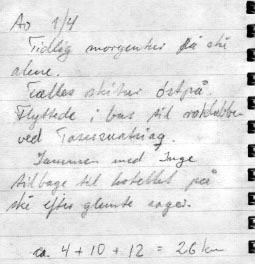 Ao 1/4
Tidlig morgentur på ski
alene.
Fælles skitur østpå.
Flyttede i bus til roklubben
ved
Sammen med Inge
tilbage til hotellet på
ski efter glemte sager.
ca. 4 + 10 + 12 = 26 km